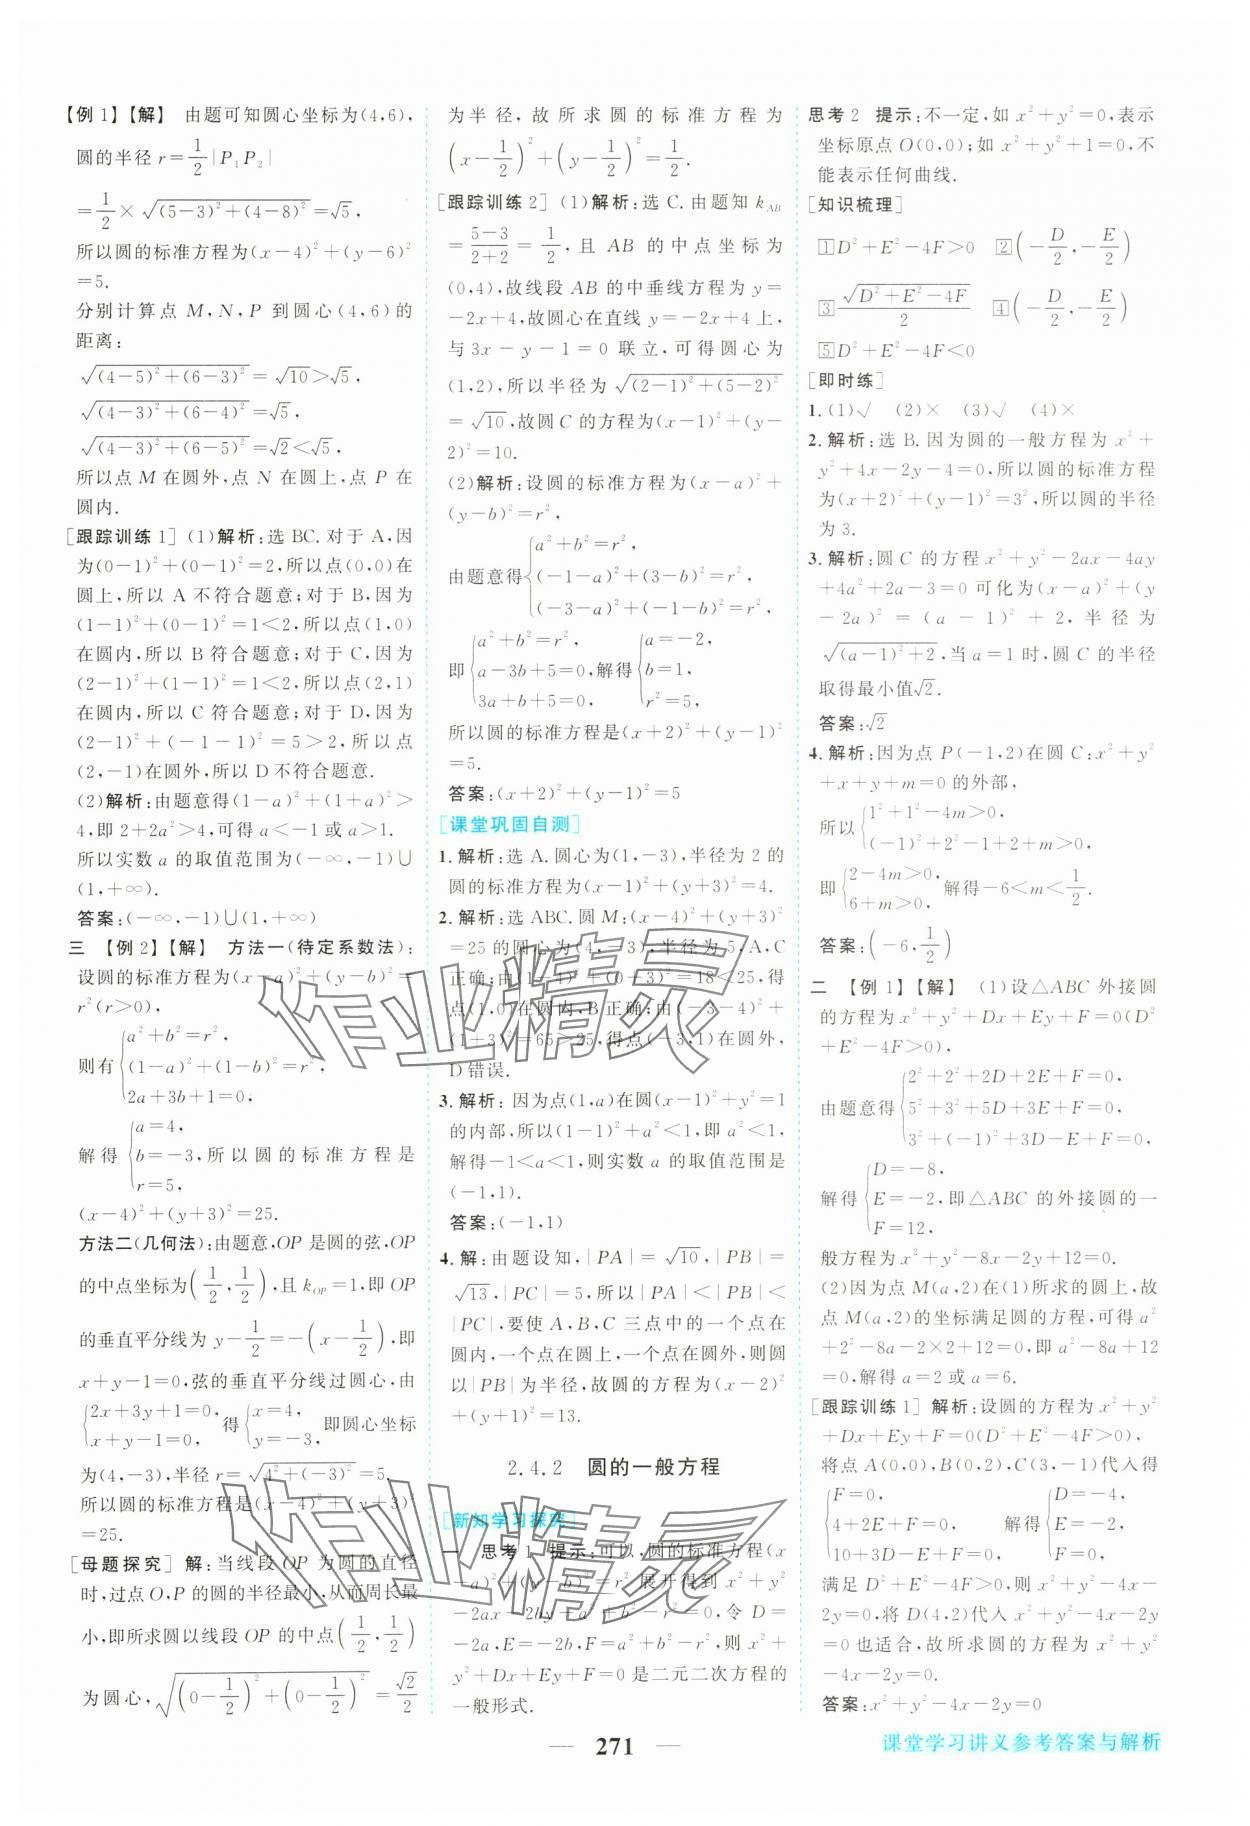 【例1】【解】 由题可知圆心坐标为(4,6),
圆的半径 r=1/2|P₁P₂|
=1/2×√((5-3)²+(4-8)²)=√5,
所以圆的标准方程为(x-4)²+(y-6)²
=5.
分别计算点 M,N,P 到圆心(4,6)的
距离:
√((4-5)²+(6-3)²)=√10>√5,
√((4-3)²+(6-4)²)=√5,
√((4-3)²+(6-5)²)=√2<√5,
所以点 M 在圆外,点 N 在圆上,点 P 在
圆内.
[跟踪训练1] (1)解析:选 BC.对于 A,因
为(0-1)²+(0-1)²=2,所以点(0,0)在
圆上,所以 A 不符合题意;对于 B,因为
(1-1)²+(0-1)²=1<2,所以点(1,0)
在圆内,所以 B 符合题意;对于 C,因为
(2-1)²+(1-1)²=1<2,所以点(2,1)
在圆内,所以 C 符合题意;对于 D,因为
(2-1)²+(-1-1)²=5>2,所以点
(2,-1)在圆外,所以 D 不符合题意.
(2)解析:由题意得(1-a)²+(1+a)²>
4,即 2+2a²>4,可得 a<-1 或 a>1.
所以实数 a 的取值范围为(-∞,-1)∪
(1,+∞).
答案:(-∞,-1)∪(1,+∞)
三 【例2】【解】 方法一(待定系数法):
设圆的标准方程为(x-a)²+(y-b)²=
r²(r>0),
则有{a²+b²=r²,
(1-a)²+(1-b)²=r²,
2a+3b+1=0,
解得{a=4,
b=-3,所以圆的标准方程是
r=5,
(x-4)²+(y+3)²=25.
方法二(几何法):由题意,OP 是圆的弦,OP
的中点坐标为(1/2,1/2),且 k_OP=1,即 OP
的垂直平分线为 y-1/2=-(x-1/2),即
x+y-1=0,弦的垂直平分线过圆心,由
{2x+3y+1=0, 得{x=4, 即圆心坐标
x+y-1=0, y=-3,
为(4,-3),半径 r=√(4²+(-3)²)=5,
所以圆的标准方程是(x-4)²+(y+3)²
=25.
[母题探究] 解:当线段 OP 为圆的直径
时,过点 O,P 的圆的半径最小,从而周长最
小,即所求圆以线段 OP 的中点(1/2,1/2)
为圆心,√((0-1/2)²+(0-1/2)²)=√2/2
为半径,故所求圆的标准方程为
(x-1/2)²+(y-1/2)²=1/2.
[跟踪训练2] (1)解析:选 C.由题知 k_AB
=(5-3)/(2+2)=1/2,且 AB 的中点坐标为
(0,4),故线段 AB 的中垂线方程为 y=
-2x+4,故圆心在直线 y=-2x+4 上,
与 3x-y-1=0 联立,可得圆心为
(1,2),所以半径为 √((2-1)²+(5-2)²)
=√10,故圆 C 的方程为(x-1)²+(y-
2)²=10.
(2)解析:设圆的标准方程为(x-a)²+
(y-b)²=r²,
由题意得{a²+b²=r²,
(-1-a)²+(3-b)²=r²,
(-3-a)²+(-1-b)²=r²,
即{a²+b²=r², {a=-2,
a-3b+5=0,解得 b=1,
3a+b+5=0, r²=5,
所以圆的标准方程是(x+2)²+(y-1)²
=5.
答案:(x+2)²+(y-1)²=5
[课堂巩固自测]
1.解析:选 A.圆心为(1,-3),半径为 2 的
圆的标准方程为(x-1)²+(y+3)²=4.
2.解析:选 ABC.圆 M:(x-4)²+(y+3)²
=25 的圆心为(4,-3),半径为 5,A,C
正确;由(1-4)²+(0+3)²=18<25,得
点(1,0)在圆内,B 正确;由(-3-4)²+
(1+3)²=65>25,得点(-3,1)在圆外,
D 错误.
3.解析:因为点(1,a)在圆(x-1)²+y²=1
的内部,所以(1-1)²+a²<1,即 a²<1,
解得-1<a<1,则实数 a 的取值范围是
(-1,1).
答案:(-1,1)
4.解:由题设知,|PA|=√10,|PB|=
√13,|PC|=5,所以|PA|<|PB|<
|PC|,要使 A,B,C 三点中的一个点在
圆内,一个点在圆上,一个点在圆外,则圆
以|PB|为半径,故圆的方程为(x-2)²
+(y+1)²=13.
2.4.2 圆的一般方程
[新知学习探究]
一 思考1 提示:可以,圆的标准方程(x
-a)²+(y-b)²=r² 展开得到 x²+y²
-2ax-2by+a²+b²-r²=0,令 D=
-2a,E=-2b,F=a²+b²-r²,则 x²+
y²+Dx+Ey+F=0 是二元二次方程的
一般形式.
思考2 提示:不一定,如 x²+y²=0,表示
坐标原点 O(0,0);如 x²+y²+1=0,不
能表示任何曲线.
[知识梳理]
1 D²+E²-4F>0 2 (-D/2,-E/2)
3 √(D²+E²-4F)/2 4 (-D/2,-E/2)
5 D²+E²-4F<0
[即时练]
1.(1)√ (2)× (3)√ (4)×
2.解析:选 B.因为圆的一般方程为 x²+
y²+4x-2y-4=0,所以圆的标准方程
为(x+2)²+(y-1)²=3²,所以圆的半径
为 3.
3.解析:圆 C 的方程 x²+y²-2ax-4ay
+4a²+2a-3=0 可化为(x-a)²+(y
-2a)²=(a-1)²+2,半径为
√((a-1)²+2),当 a=1 时,圆 C 的半径
取得最小值√2.
答案:√2
4.解析:因为点 P(-1,2)在圆 C:x²+y²
+x+y+m=0 的外部,
所以{1²+1²-4m>0,
(-1)²+2²-1+2+m>0,
即{2-4m>0, 解得-6<m<1/2.
6+m>0,
答案:(-6,1/2)
二 【例1】【解】 (1)设△ABC 外接圆
的方程为 x²+y²+Dx+Ey+F=0(D²
+E²-4F>0),
由题意得{2²+2²+2D+2E+F=0,
5²+3²+5D+3E+F=0,
3²+(-1)²+3D-E+F=0,
解得{D=-8,
E=-2,即△ABC 的外接圆的一
F=12,
般方程为 x²+y²-8x-2y+12=0.
(2)因为点 M(a,2)在(1)所求的圆上,故
点 M(a,2)的坐标满足圆的方程,可得 a²
+2²-8a-2×2+12=0,即 a²-8a+12
=0,解得 a=2 或 a=6.
[跟踪训练1] 解析:设圆的方程为 x²+y²
+Dx+Ey+F=0(D²+E²-4F>0),
将点 A(0,0),B(4,0),C(3,1)代入得
{F=0, {D=-4,
4²+4D+F=0, 解得 E=-2,
10+3D+E+F=0, F=0,
满足 D²+E²-4F>0,则 x²+y²-4x-
2y=0,将 D(4,2)代入 x²+y²-4x-2y
=0 也适合,故所求圆的方程为 x²+y²
-4x-2y=0.
答案:x²+y²-4x-2y=0
— 271 —
课堂学习讲义参考答案与解析
作业精灵
作业精灵